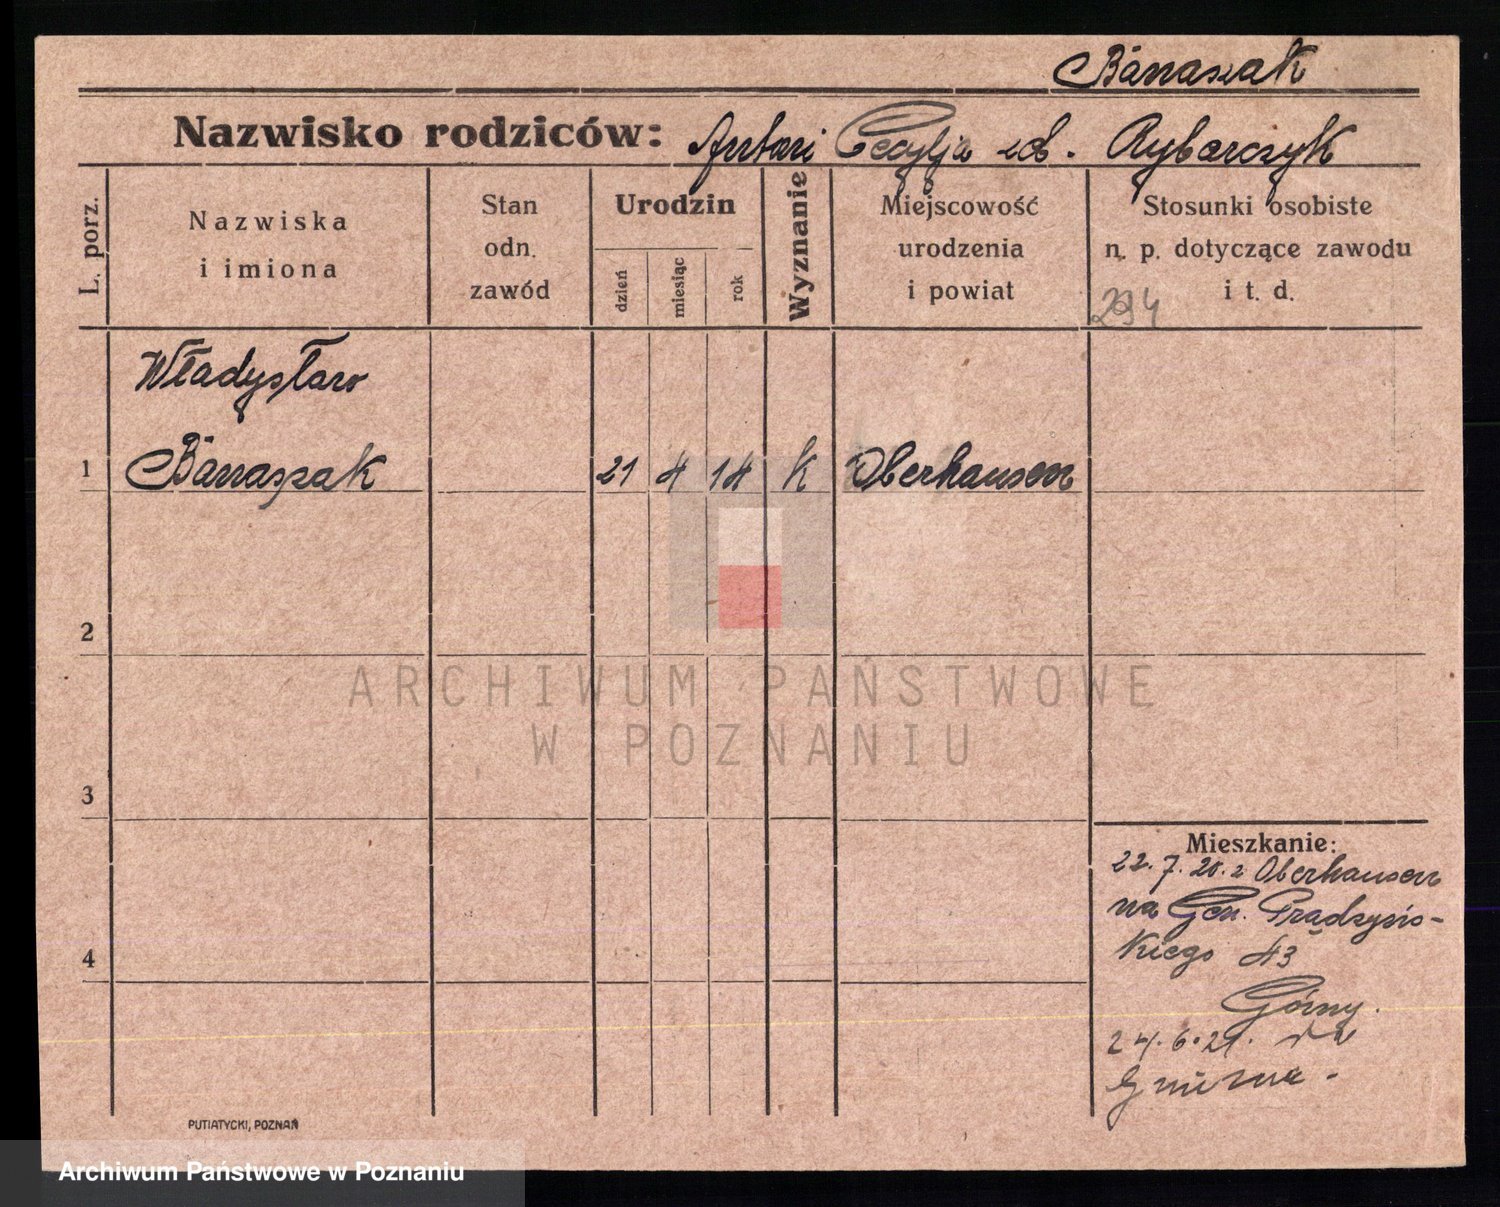 Banaszak
Nazwisko rodziców: Antoni Cecylja zd. Rybarczyk
L. porz.
Nazwiska
i imiona
Stan
odn.
zawód
Urodzin
dzień
miesiąc
rok
Wyznanie
Miejscowość
urodzenia
i powiat
Stosunki osobiste
n. p. dotyczące zawodu
i t. d.
294
Władysław
1 Banaszak 21 4 14 K Oberhausen
2
3
4
Mieszkanie:
22.7.20. z Oberhausen
na Gen. Prądzyńs-
kiego 43
Górny.
24.6.21. do
Gniezna -
PUTIATYCKI, POZNAŃ
ARCHIWUM PAŃSTWOWE
W POZNANIU
Archiwum Państwowe w Poznaniu